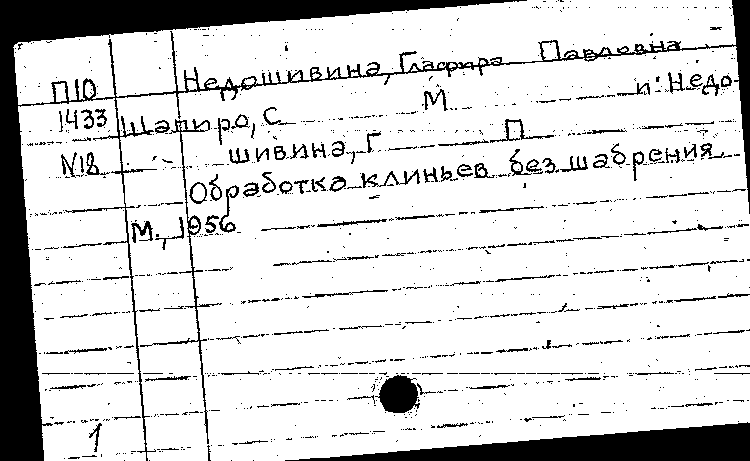 П10 Недошивина, Глафира Павловна
1433 Шапиро, С М и Недо-
N18 шивина, Г П
Обработка клиньев без шабрения
М., 1956
1